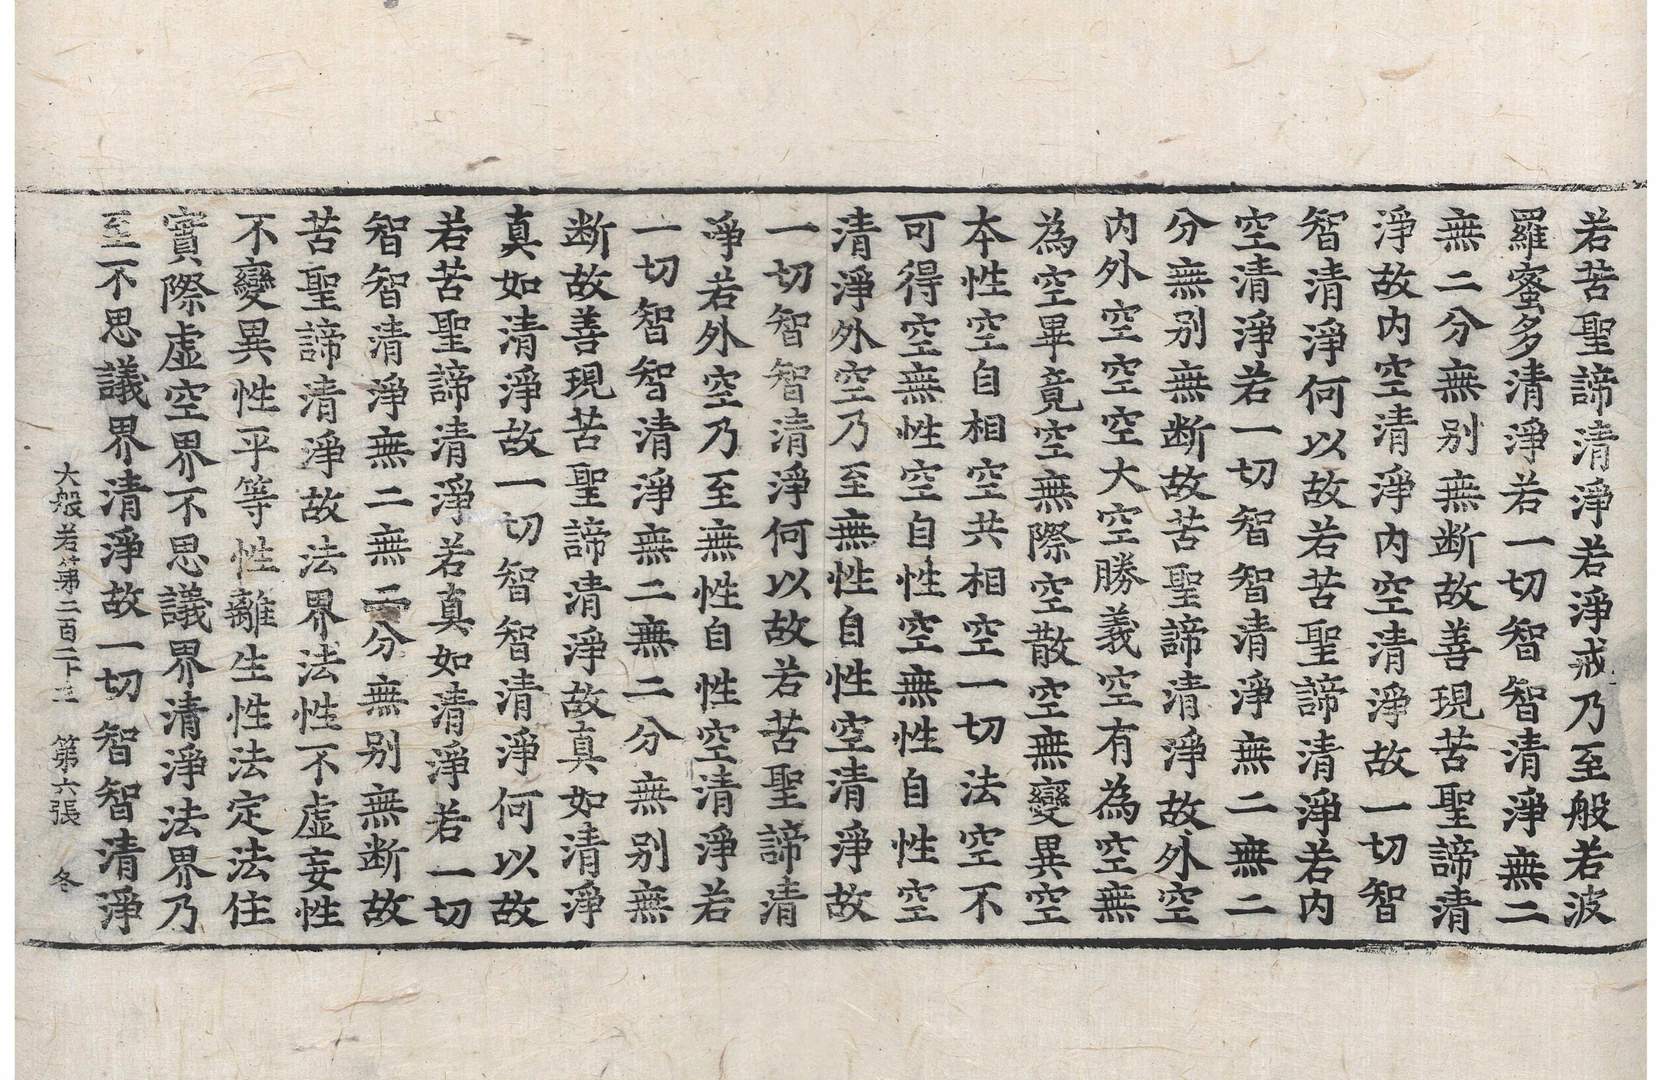 若苦聖諦清淨若淨戒乃至般若波
羅蜜多清淨若一切智智清淨無二
無二分無别無断故善現苦聖諦清
淨故内空清淨内空清淨故一切智
智清淨何以故若苦聖諦清淨若内
空清淨若一切智智清淨無二無二
分無别無断故苦聖諦清淨故外空
内外空空空大空勝義空有為空無
為空畢竟空無際空散空無變異空
本性空自相空共相空一切法空不
可得空無性空自性空無性自性空
清淨外空乃至無性自性空清淨故
一切智智清淨何以故若苦聖諦清
淨若外空乃至無性自性空清淨若
一切智智清淨無二無二分無别無
断故善現苦聖諦清淨故真如清淨
真如清淨故一切智智清淨何以故
若苦聖諦清淨若真如清淨若一切
智智清淨無二無二分無别無断故
苦聖諦清淨故法界法性不虚妄性
不變異性平等性離生性法定法住
實際虚空界不思議界清淨法界乃
至不思議界清淨故一切智智清淨
大般若第二百二十三 第六張 冬